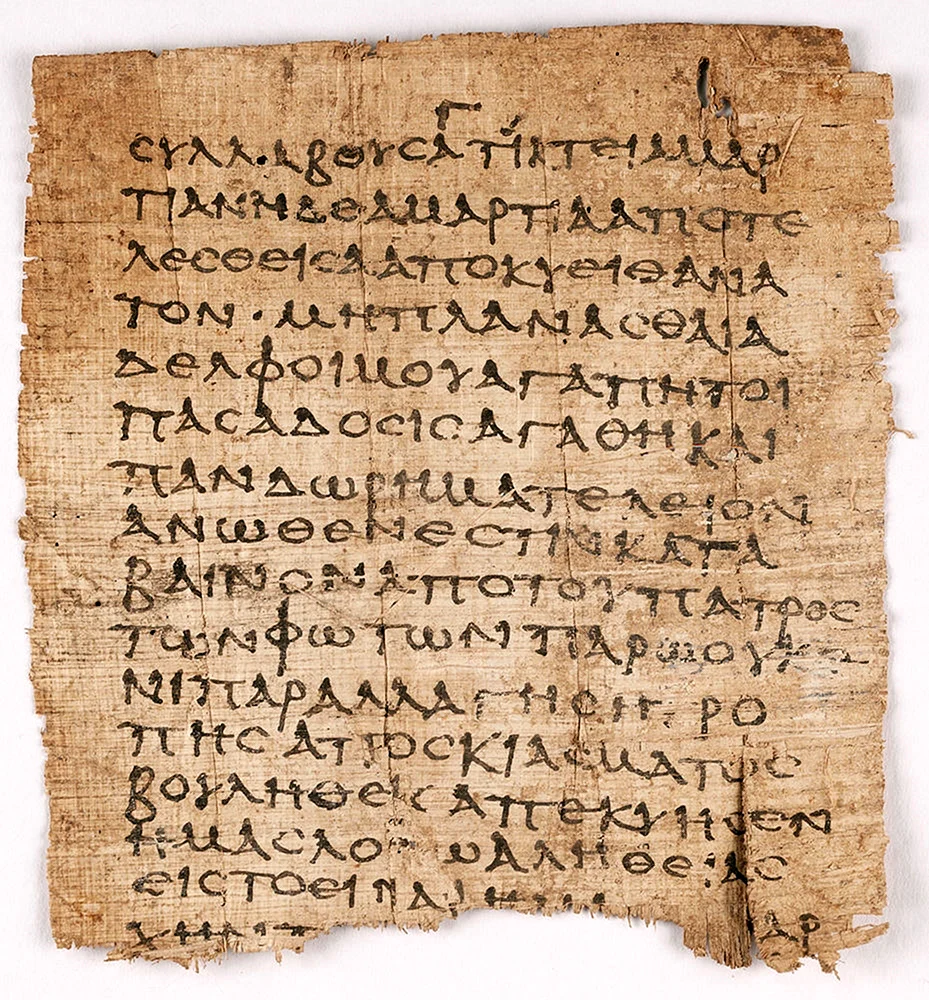 Γ
ϹΥΛΛΑΒΟΥϹΑΤΙΚΤΕΙΑΜΑΡ
ΤΙΑΝΗΔΕΑΜΑΡΤΙΑΑΠΟΤΕ
ΛΕϹΘΕΙϹΑΑΠΟΚΥΕΙΘΑΝΑ
ΤΟΝ · ΜΗΠΛΑΝΑϹΘΑΙΑ
ΔΕΛΦΟΙΜΟΥΑΓΑΠΗΤΟΙ
ΠΑϹΑΔΟϹΙϹΑΓΑΘΗΚΑΙ
ΠΑΝΔΩΡΗΜΑΤΕΛΕΙΟΝ
ΑΝΩΘΕΝΕϹΤΙΝΚΑΤΑ
ΒΑΙΝΟΝΑΠΟΤΟΥΠΑΤΡΟϹ
ΤΩΝΦΩΤΩΝΠΑΡΩΟΥΚΕ
ΝΙΠΑΡΑΛΛΑΓΗϹΗΤΡΟ
ΠΗϹΑΠΟϹΚΙΑϹΜΑΤΟϹ
ΒΟΥΛΗΘΕΙϹΑΠΕΚΥΗϹΕΝ
ΗΜΑϹΛΟΓΩΑΛΗΘΕΙΑϹ
ΕΙϹΤΟΕΙΝΑΙ